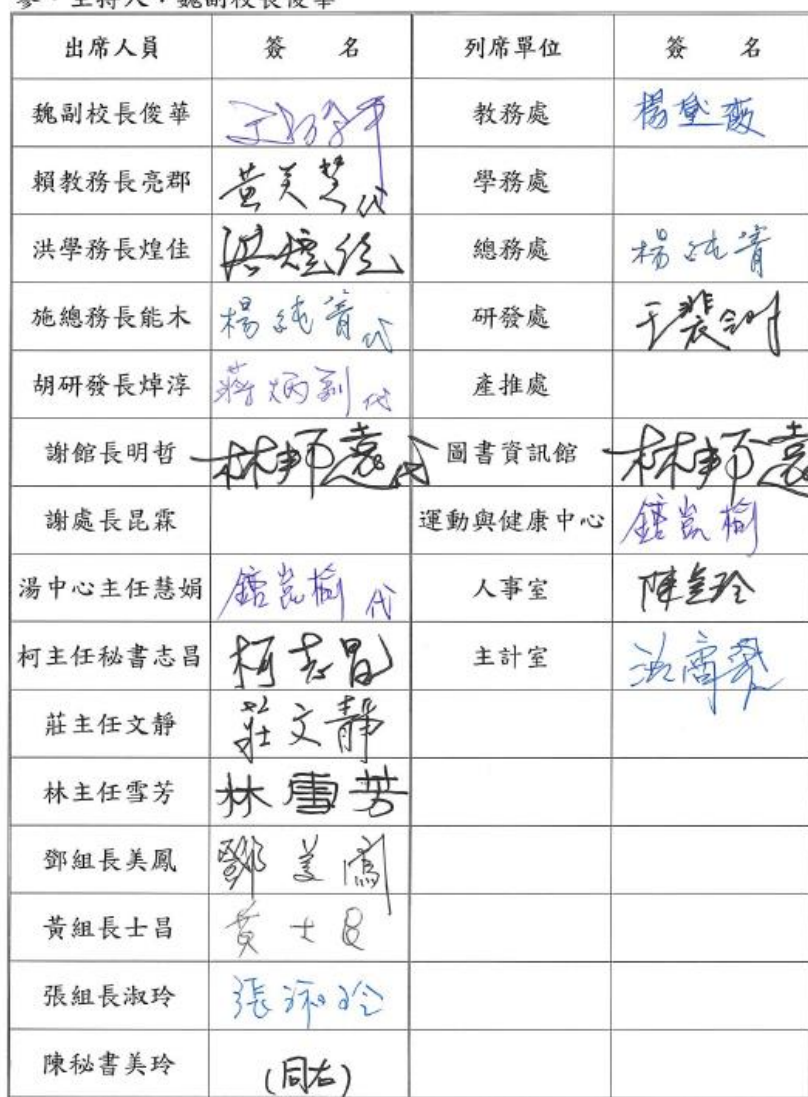 參、主持人：魏副校長俊華
出席人員 簽 名 列席單位 簽 名
魏副校長俊華 教務處
賴教務長亮郡 黃美芝代 學務處
洪學務長煌佳 洪煌佳 總務處 楊純青
施總務長能木 楊純青代 研發處
胡研發長焯淳 蔣炳剛代 產推處
謝館長明哲 林師嘉代 圖書資訊館 林師嘉
謝處長昆霖 運動與健康中心 鍾凱榆
湯中心主任慧娟 鍾凱榆代 人事室
柯主任秘書志昌 柯志昌 主計室
莊主任文靜 莊文靜
林主任雪芳 林雪芳
鄧組長美鳳 鄧美鳳
黃組長士昌 黃士昌
張組長淑玲 張淑玲
陳秘書美玲 (同右)